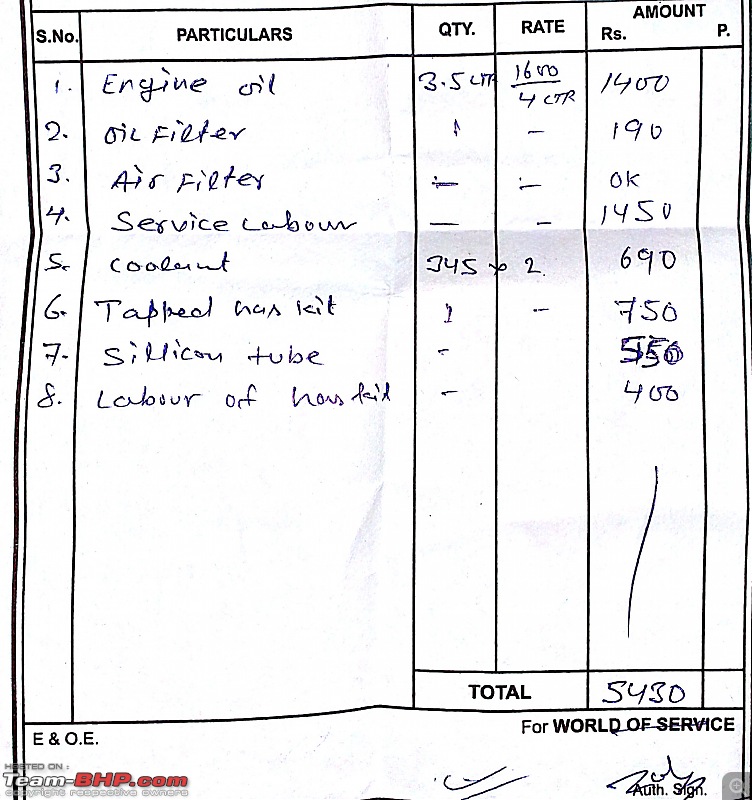 S.No. PARTICULARS QTY. RATE AMOUNT
Rs. P.
1. Engine oil 3.5 LTR 1600/4 LTR 1400
2. Oil Filter 1 - 190
3. Air Filter - - OK
4. Service Labour - - 1450
5. Coolant 345 x 2 690
6. Tapped kit 1 - 750
7. Sillicon tube - 550
8. Labour of kit - 400
TOTAL 5430
For WORLD OF SERVICE
E & O.E.
Auth. Sign.
HOSTED ON :
Team-BHP.com
copyright respective owners